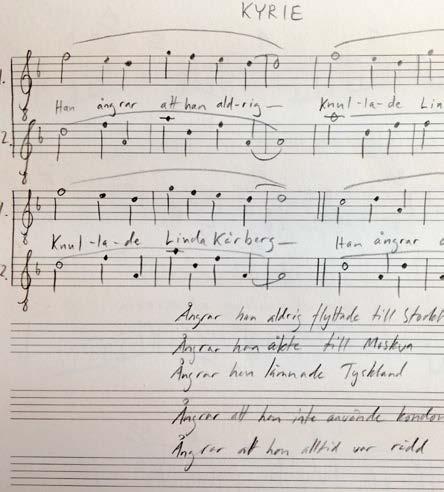 KYRIE
1.
Han ångrar att han ald-rig— Knul-la-de Lin
2.
1.
Knul-la-de Linda Kårberg— Han ångrar a
2.
Ångrar han aldrig flyttade till Stockh
Ångrar han åkte till Moskva
Ångrar hon lämnade Tyskland
Ångrar att hon inte använde kondom
Ångrar att hon alltid var rädd